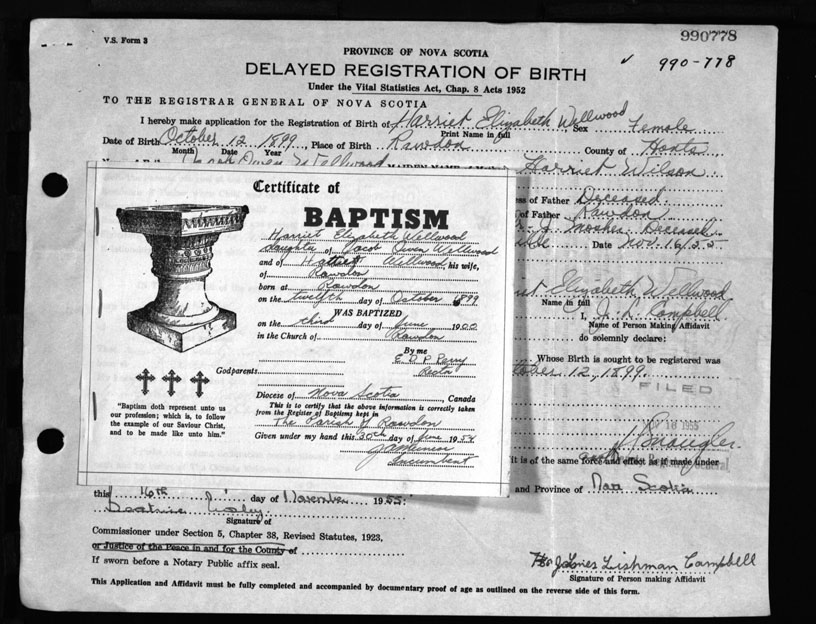 V.S. Form 3
990778
990-778
PROVINCE OF NOVA SCOTIA
DELAYED REGISTRATION OF BIRTH
Under the Vital Statistics Act, Chap. 8 Acts 1952
TO THE REGISTRAR GENERAL OF NOVA SCOTIA
I hereby make application for the Registration of Birth of Harriet Elizabeth Wellwood, Sex Female
Print Name in full
Date of Birth October 12 1899, Place of Birth Rawdon County of Hants
Month) Date Year
Harriet Wilson
ss of Father Deceased
of Father Rawdon
Mosher Deceased
Date Nov. 16/55
Elizabeth Wellwood
Name in full
I, Campbell
Name of Person Making Affidavit
do solemnly declare:
Whose Birth is sought to be registered was
tober 12, 1899.
FILED
it is of the same force and effect as if made under
and Province of Nova Scotia
Certificate of
BAPTISM
Harriet Elizabeth Wellwood
daughter of Jacob Owen Wellwood
and of Wellwood, his wife,
of Rawdon
born at Rawdon
on the twelfth day of October 1899
WAS BAPTIZED
on the third day of June
in the Church of Rawdon
By me
E D P Parry
Godparents Rector
Diocese of Nova Scotia, Canada
This is to certify that the above information is correctly taken
from the Register of Baptisms kept in
The Parish of Rawdon
Given under my hand this 30th day of June 1954
Incumbent
"Baptism doth represent unto us
our profession; which is, to follow
the example of our Saviour Christ,
and to be made like unto him."
this 16th day of November 1955
Signature of
Commissioner under Section 5, Chapter 38, Revised Statutes, 1923,
or Justice of the Peace in and for the County of
If sworn before a Notary Public affix seal.
Lishman Campbell
Signature of Person making Affidavit
This Application and Affidavit must be fully completed and accompanied by documentary proof of age as outlined on the reverse side of this form.